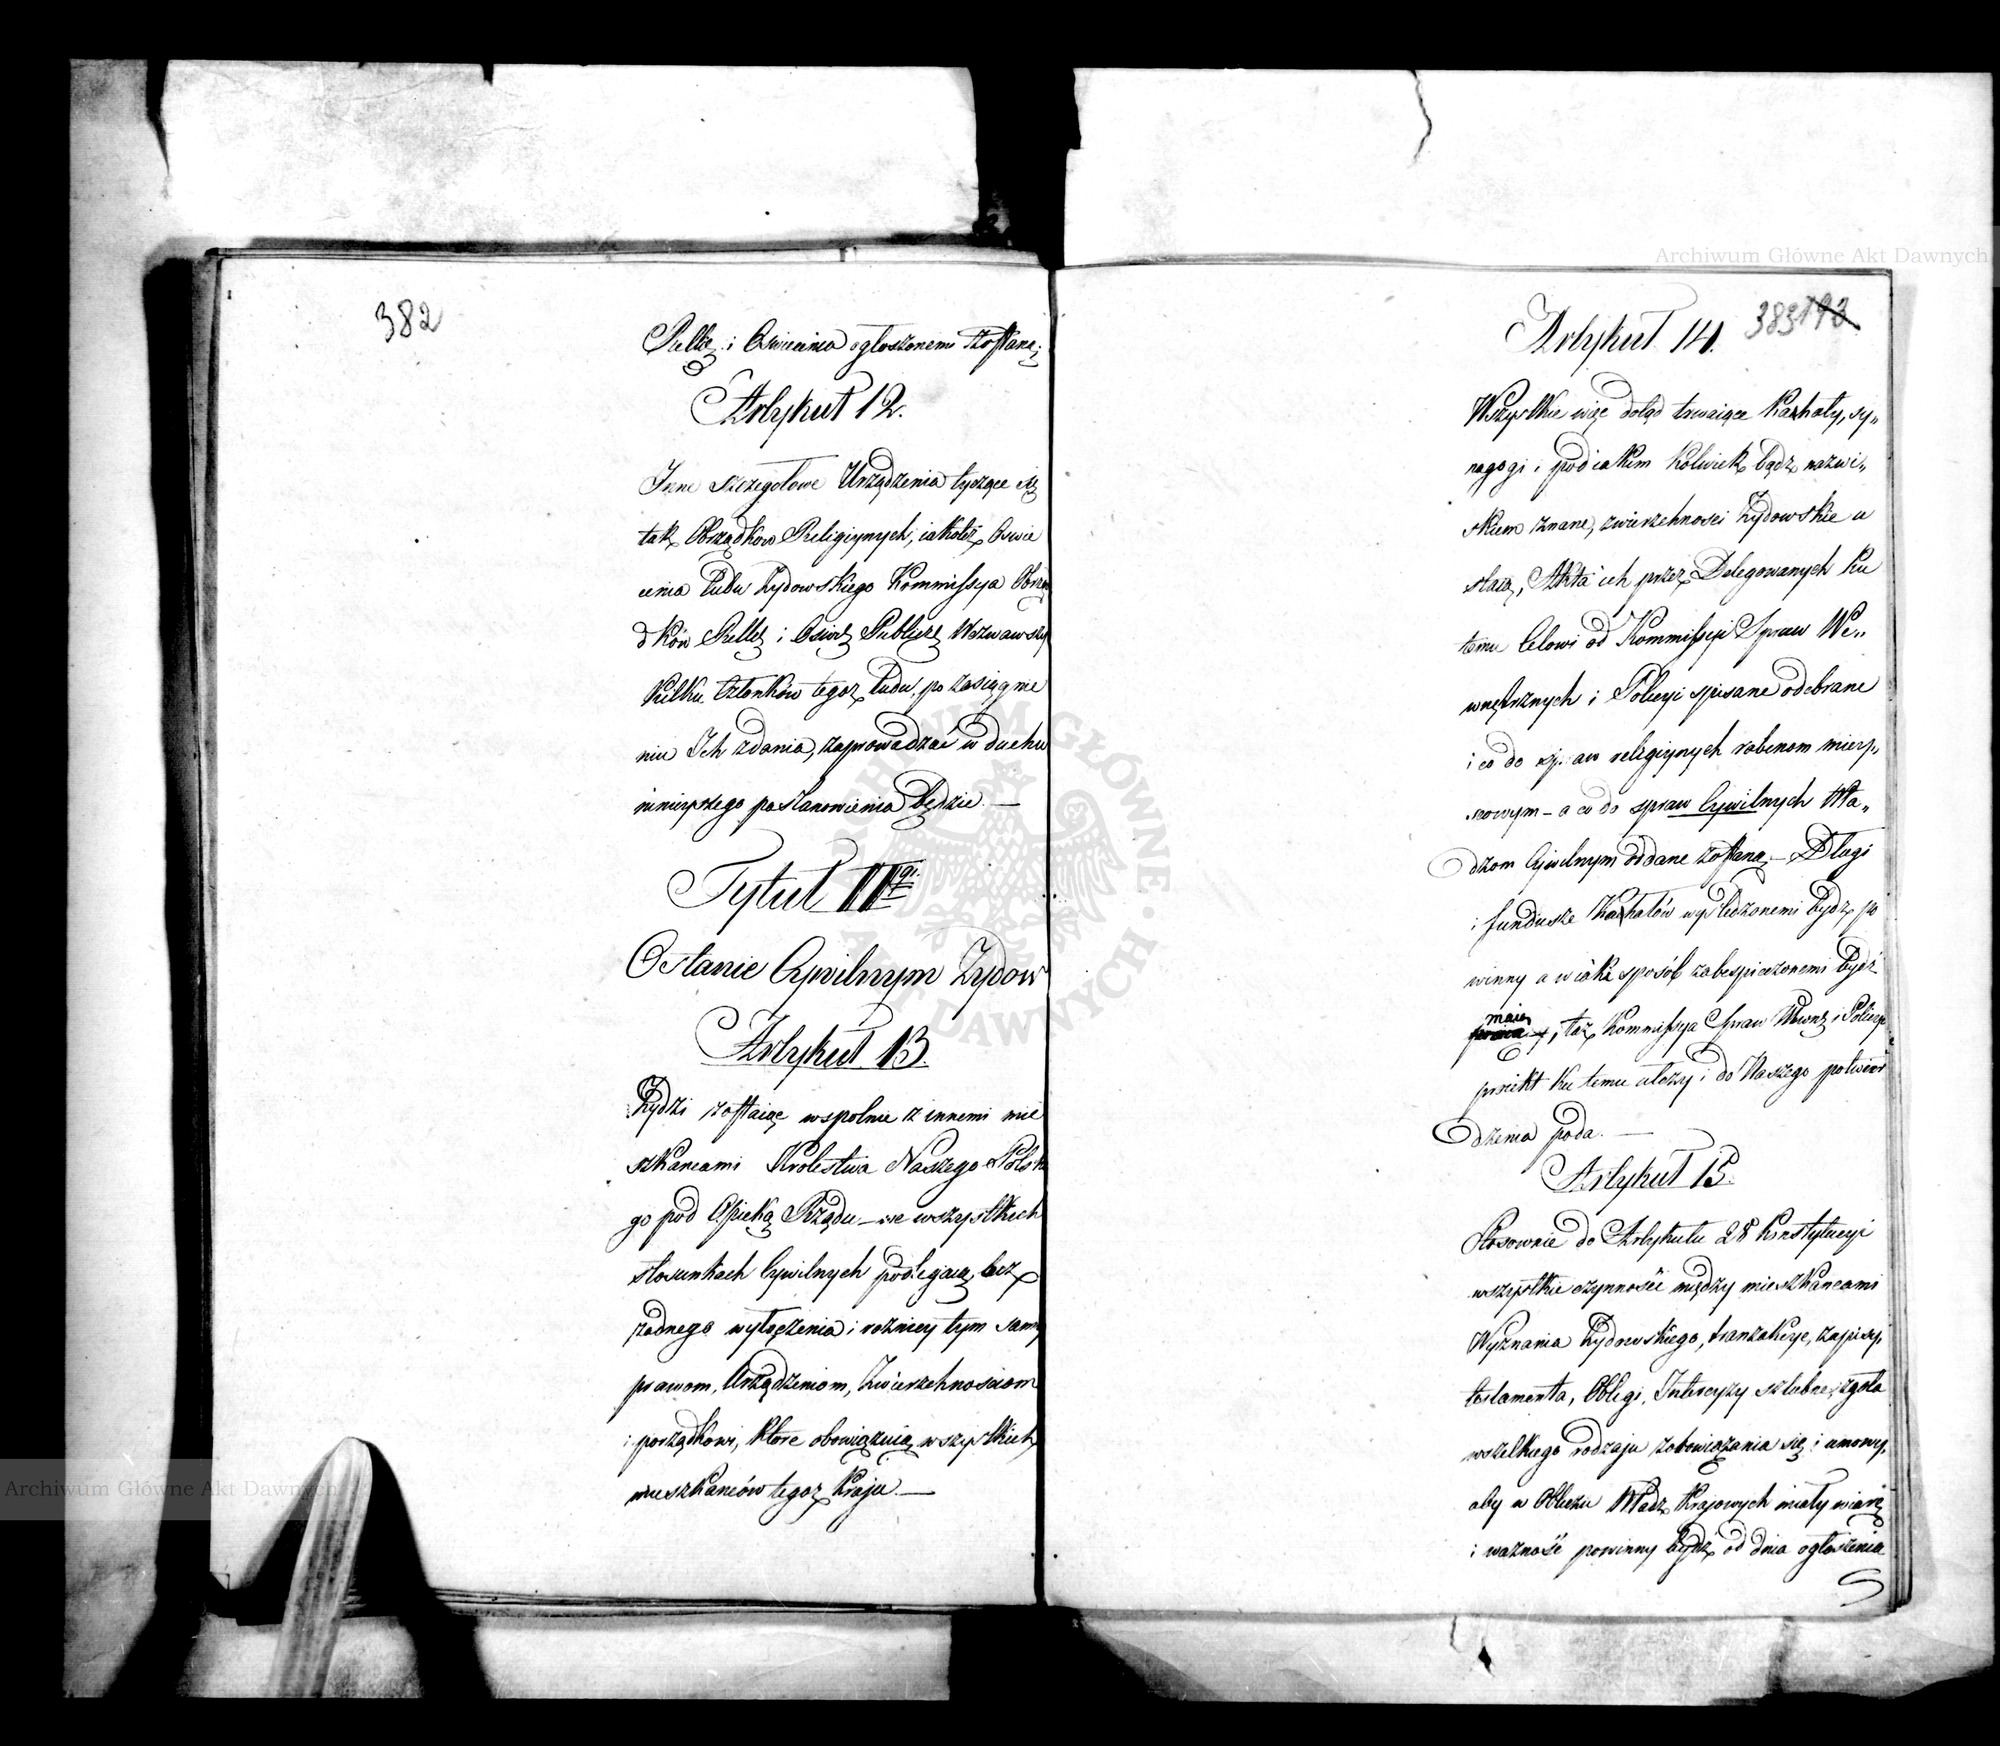 382
Rellig i Oświecenia ogłoszonemi zostaną;
Artykuł 12.
Inne szczegołowe Urządzenia tyczące się
tak Obrządkow Religiynych, iakoteż Oswie
cenia Ludu Zydowskiego Kommissya Obrzą
dków Rellig i Oświe Publicz Wezwawszy
kilku Członków tegoż Ludu, po zasiągnie
niu Ich zdania, zaprowadzać w duchu
ninieyszego postanowienia będzie. —
Tytuł IIgi.
O stanie Cywilnym Zydow
Artykuł 13.
Zydzi zostaiąc wspolnie z innemi mie
szkancami Krolestwa Naszego Polski
go pod Opieką Rządu — we wszystkich
stosunkach Cywilnych podlegaią, bez
zadnego wyłączenia i rożnicy tym samy
prawom, Urządzeniom, Zwierzchnosciom
i porządkowi, ktore obowiązuią wszystkich
mieszkancow tegoż kraju. —
383 193
Artykuł 14.
Wszystkie więc dotąd trwaiące Kahały, sy„
nagogi i pod iakim kolwiek bądz nazwi„
skiem znane, zwierzchnosci Zydowskie u
staią, Akta ich przez Delegowanych ku
temu Celowi od Kommissyi Spraw We„
wnętrznych i Policyi spisane odebrane
i co do spraw religiynych rabinom mieys„
cowym — a co do spraw Cywilnych Wła„
dzom Cywilnym oddane zostaną — Długi
i fundusze Kahałów wysledzonemi bydz po
winny a w iaki sposób zabespieczonemi bydź
maią
, taż Kommissya Spraw Wewnę i Policyi
proiekt ku temu ułoży i do Naszego potwier
dzenia poda. —
Artykuł 15.
Stosownie do Artykułu 28 Konstytucyi
wszystkie czynności między mieszkancami
Wyznania Zydowskiego, tranzakcye, zapisy,
testamenta, Obligi, Intercyzy szlubne, zgoła
wszelkiego rodzaju zobowiązania się i umowy,
aby w Obliczu Władz Krajowych miały wiarę
i ważność powinny bydź od dnia ogłoszenia
Archiwum Główne Akt Dawnych
Archiwum Główne Akt Dawnych
ARCHIWUM GŁÓWNE AKT DAWNYCH